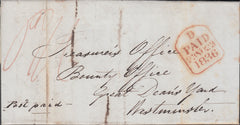 D
PAID
1836
Treasurers Office
Bounty Office
Great Deans Yard
Westminster
Post paid